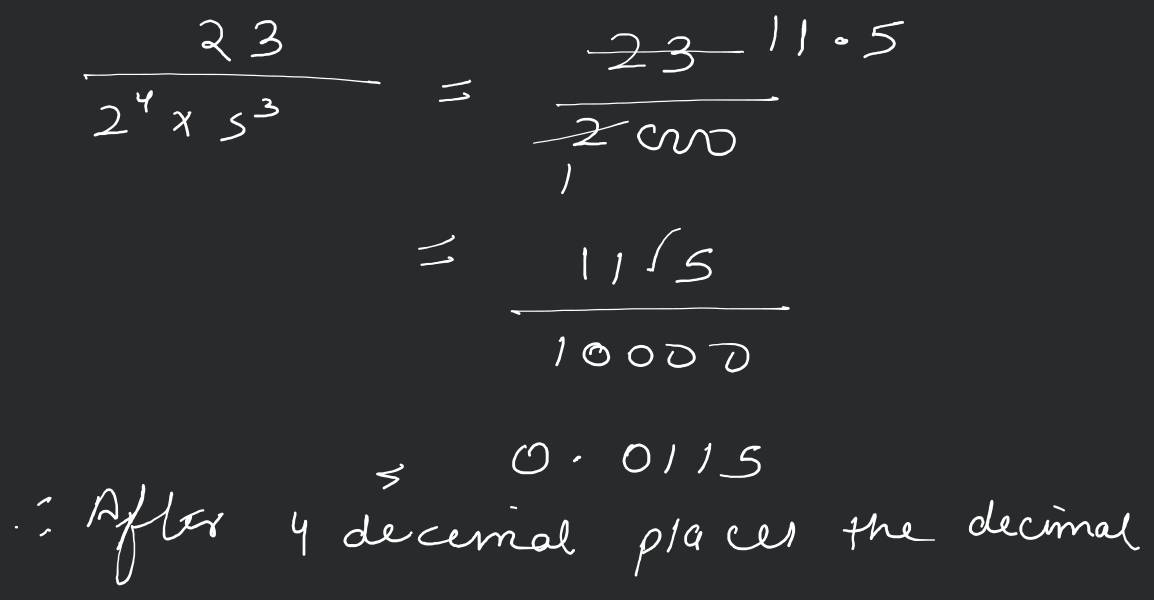 23 / 2⁴ × 5³ = 23 11.5 / 2000 1
= 115 / 10000
= 0.0115
∴ After 4 decemal places the decimal